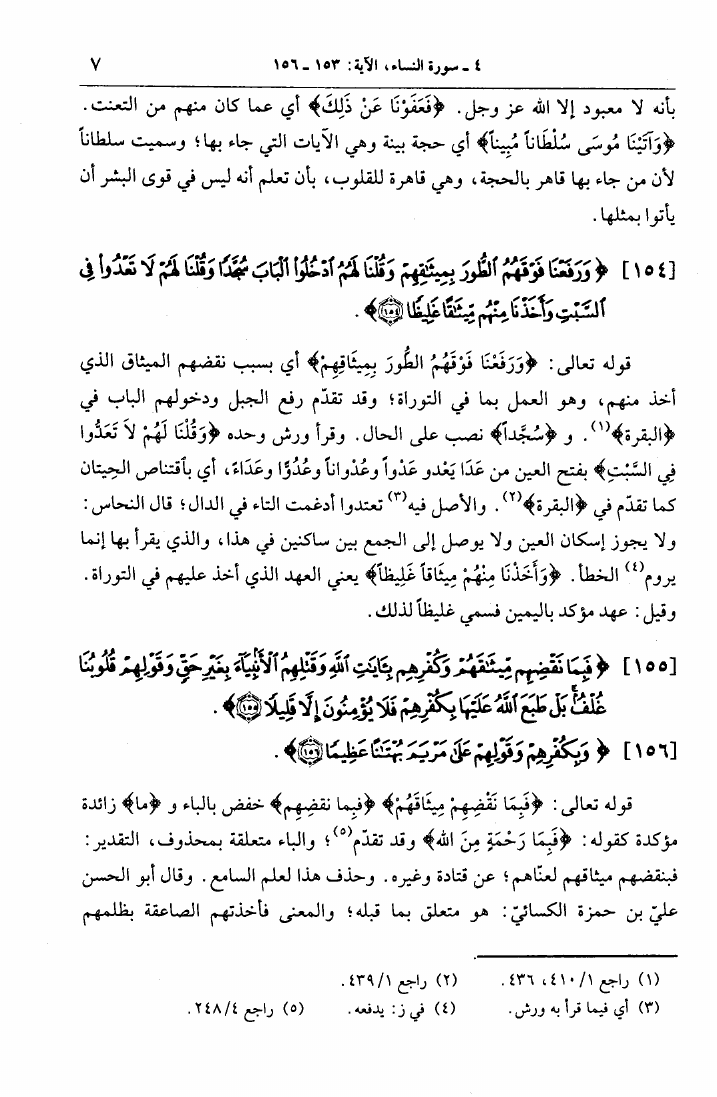 ٤ ـ سورة النساء، الآية: ١٥٣ ـ ١٥٦ ٧
بأنه لا معبود إلا الله عز وجل. ﴿فَعَفَوْنَا عَنْ ذَلِكَ﴾ أي عما كان منهم من التعنت.
﴿وَآتَيْنَا مُوسَى سُلْطَاناً مُبِيناً﴾ أي حجة بينة وهي الآيات التي جاء بها؛ وسميت سلطاناً
لأن من جاء بها قاهر بالحجة، وهي قاهرة للقلوب، بأن تعلم أنه ليس في قوى البشر أن
يأتوا بمثلها.
[١٥٤] ﴿ وَرَفَعْنَا فَوْقَهُمُ ٱلطُّورَ بِمِيثَٰقِهِمْ وَقُلْنَا لَهُمُ ٱدْخُلُوا۟ ٱلْبَابَ سُجَّدًا وَقُلْنَا لَهُمْ لَا تَعْدُوا۟ فِى
ٱلسَّبْتِ وَأَخَذْنَا مِنْهُم مِّيثَٰقًا غَلِيظًا ١٥٤﴾ .
قوله تعالى: ﴿وَرَفَعْنَا فَوْقَهُمُ الطُّورَ بِمِيثَاقِهِمْ﴾ أي بسبب نقضهم الميثاق الذي
أخذ منهم، وهو العمل بما في التوراة؛ وقد تقدّم رفع الجبل ودخولهم الباب في
﴿البقرة﴾(١). و ﴿سُجَّداً﴾ نصب على الحال. وقرأ ورش وحده ﴿وَقُلْنَا لَهُمْ لاَ تَعَدُّوا
فِي السَّبْتِ﴾ بفتح العين من عَدَا يَعْدو عَدْواً وعُدْواناً وعُدُوًّا وعَدَاءً، أي بٱقتناص الحِيتان
كما تقدّم في ﴿البقرة﴾(٢). والأصل فيه(٣) تعتدوا أدغمت التاء في الدال؛ قال النحاس:
ولا يجوز إسكان العين ولا يوصل إلى الجمع بين ساكنين في هذا، والذي يقرأ بها إنما
يروم(٤) الخطأ. ﴿وَأَخَذْنَا مِنْهُمْ مِيثَاقاً غَلِيظاً﴾ يعني العهد الذي أخذ عليهم في التوراة.
وقيل: عهد مؤكد باليمين فسمي غليظاً لذلك.
[١٥٥] ﴿ فَبِمَا نَقْضِهِم مِّيثَٰقَهُمْ وَكُفْرِهِم بِـَٔايَٰتِ ٱللَّهِ وَقَتْلِهِمُ ٱلْأَنۢبِيَآءَ بِغَيْرِ حَقٍّ وَقَوْلِهِمْ قُلُوبُنَا
غُلْفٌۢ بَلْ طَبَعَ ٱللَّهُ عَلَيْهَا بِكُفْرِهِمْ فَلَا يُؤْمِنُونَ إِلَّا قَلِيلًا ١٥٥﴾ .
[١٥٦] ﴿ وَبِكُفْرِهِمْ وَقَوْلِهِمْ عَلَىٰ مَرْيَمَ بُهْتَٰنًا عَظِيمًا ١٥٦﴾ .
قوله تعالى: ﴿فَبِمَا نَقْضِهِمْ مِيثَاقَهُمْ﴾ ﴿فبما نقضِهِم﴾ خفض بالباء و ﴿ما﴾ زائدة
مؤكدة كقوله: ﴿فَبِمَا رَحْمَةٍ مِنَ الله﴾ وقد تقدّم(٥)؛ والباء متعلقة بمحذوف، التقدير:
فبنقضهم ميثاقهم لعنّاهم؛ عن قتادة وغيره. وحذف هذا لعلم السامع. وقال أبو الحسن
عليّ بن حمزة الكسائيّ: هو متعلق بما قبله؛ والمعنى فأخذتهم الصاعقة بظلمهم
(١) راجع ٤١٠/١، ٤٣٦. (٢) راجع ٤٣٩/١.
(٣) أي فيما قرأ به ورش. (٤) في ز: يدفعه. (٥) راجع ٢٤٨/٤.